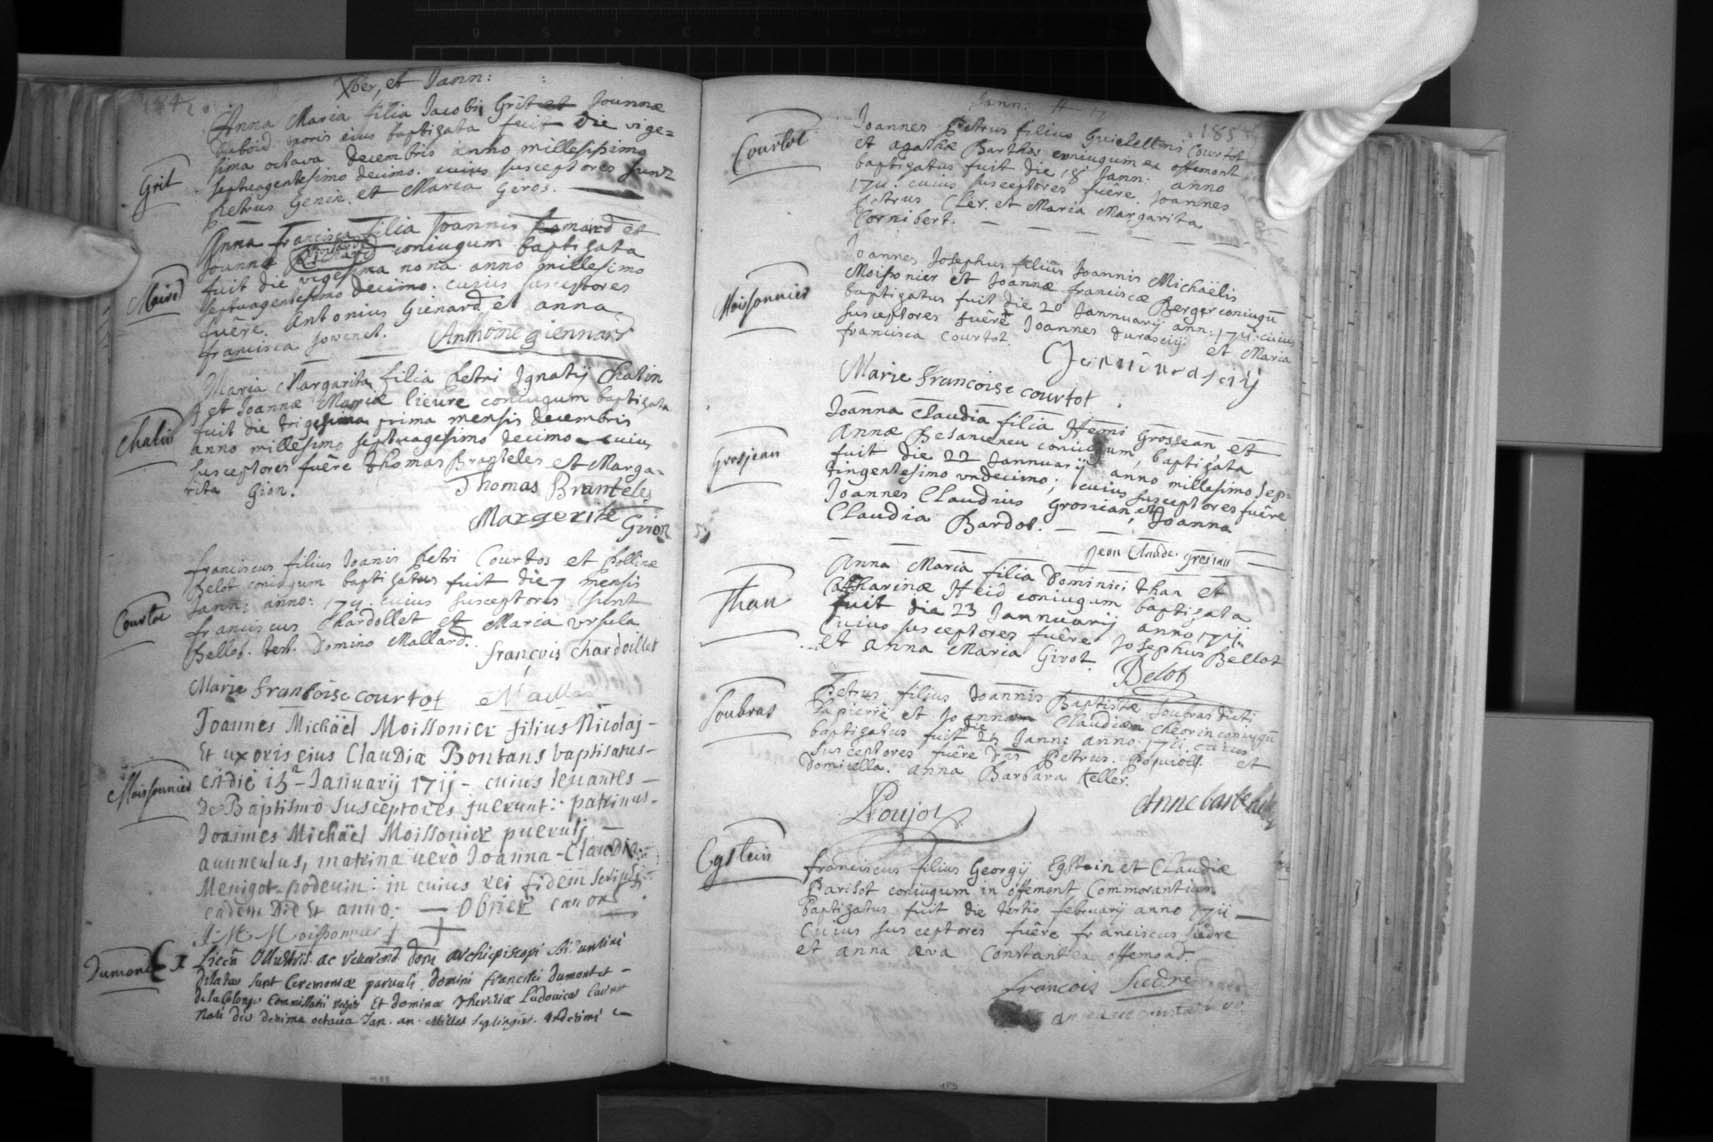 Xber, et Jann:
184
Anna Maria filia Jacobi Grit et Joannæ
uxoris eius baptizata fuit die vige=
sima octava decembris anno millesimo
Grit
septuagentesimo decimo. cuius susceptores sunt
petrus Genin et Maria Geros.
Anna francisca filia Joannis et
Joannæ coniugum baptizata
fuit die vigesima nona anno millesimo
septuagentesimo decimo. cuius susceptores
fuêre. Antonius Gienard et anna
francisca
Anthoine giennard
Maria Margarita filia Petri Ignatij Chalin
et Joannæ Mariæ lieure coniugum baptizata
fuit die trigesima prima mensis decembris
Chalin
anno millesimo septuagesimo decimo cuius
susceptores fuêre thomas Branteles et Marga-
rita Gion.
Thomas Branteles
Margerite Gion
franciscus filius Joanis petri Courtos et polline
Belot coniugum baptizatus fuit die 7 mensis
Jann: anno: 1711. cuius susceptores sunt
Courtot
franciscus Chardollet et Maria ursula
Bellot. test. Domino Mallard.
françois chardoillet
Marie francoise courtot
Joannes Michäel Moissonier filius Nicolaj -
Et uxoris eius Claudiæ Bontans baptisatus -
est die 15ª Januarij 1711 - cuius levantes -
Moissonnier
de Baptismo susceptores fuerunt: patrinus -
Joannes Michäel Moissonier pueruli -
auunculus, matrina verò Joanna - Claudia
Menigot - podeuin: in cuius rei fidem scripsi
eadem die et anno: - obrier can or
Dumont
Licêa Illustris. ac reverend. dom archiepiscopi
dilatæ sunt Ceremoniæ parvuli Domini francisci dumont et -
regis Et dominæ Theresiæ Ludovicæ
Nati die decima octava Jan. an. Milles septingint. undesimi
Jann:
185
Joannes Petrus filius Guielelmi Courtot
Courtot
et agathæ Barthas coniugum ex offemont
baptizatus fuit die 18 Jann: anno
1711. cuius susceptores fuêre. Joannes
petrus Cler. et Maria Margarita
Cornibert.
Joannes Josephus filius Joannis Michaëlis
Moissonier et Joannæ franciscæ Berger coniugũ
Moissonnier
baptizatus fuit die 20 Jannuarij ann: 1711. cuius
susceptores fuêre Joannes et Maria
francisca Courtot.
Marie francoise courtot
Joanna Claudia filia Henri Grosjean, et
Annæ coniugum, baptizata
Grosjean
fuit die 22 Jannuarij anno millesimo sep-
tingentesimo undecimo; cuius susceptores fuêre
Joannes Claudius Grosiean et Joanna
Claudia Bardot.
Jean Claude grosian
Anna Maria filia Dominici than et
Than
Catharinæ Heid coniugum baptizata
fuit die 23 Jannuarij anno 1711.
cuius susceptores fuêre Josephus Bellot
et anna Maria Girot.
Belot
Petrus filius Joannis Baptistæ Soubras dicti
Soubras
lapierre et Joannam Claudiam Cheorin coniugũ
baptizatus fuit die 25 Jann: anno 1711. cuius
susceptores fuêre Dnus Petrus et
domicella. anna Barbara keller.
Noujot
Egstein
franciscus filius Georgij Egstein et Claudiæ
Parisot coniugum in offemont Commorantium
baptizatus fuit die tertio februarij anno 1711
Cuius susceptores fuêre franciscus Suedre
et anna æva Constantea offemond.
francois Suedre